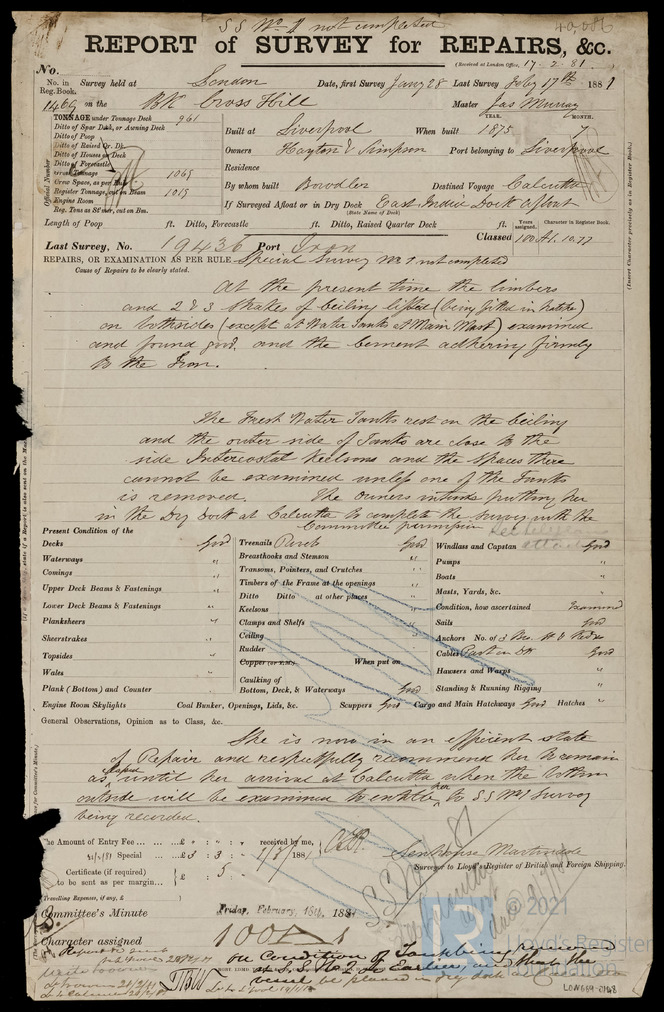 S S No 1 not completed
40,086
REPORT of SURVEY for REPAIRS, &c.
(Received at London Office, 17.2.81.)
No.
No. in Reg. Book. Survey held at London Date, first Survey Jany 28 Last Survey Feby 17th 1881
1469 on the BK Cross Hill Master Jas Murray
TONNAGE under Tonnage Deck 961
Ditto of Spar Deck, or Awning Deck
Ditto of Poop
Ditto of Raised Qr. Dk.
Ditto of Houses on Deck
Ditto of Forecastle
Gross Tonnage 1069
Crew Space, as per Rule
Register Tonnage, cut on Beam 1019
Engine Room
Reg. Tons as St'mer, cut on Bm.
Official Number
Built at Liverpool When built YEAR. 1875 MONTH. 7
Owners Hayton & Simpson Port belonging to Liverpool
Residence
By whom built Bowdler Destined Voyage Calcutta
If Surveyed Afloat or in Dry Dock East India Dock Afloat
(State Name of Dock)
Length of Poop ft. Ditto, Forecastle ft. Ditto, Raised Quarter Deck ft.
Years assigned. Character in Register Book.
Last Survey, No. 19436 Port Iron Classed 100 A1. 10.77
REPAIRS, OR EXAMINATION AS PER RULE Special Survey No 1 not completed
Cause of Repairs to be clearly stated.
At the present time the limbers
and 2 & 3 strakes of ceiling lifted (being fitted in hatches)
on both sides (except at Water Tanks at Main Mast) examined
and found good, and the cement adhering firmly
to the Iron.
The Fresh Water Tanks rest on the ceiling
and the outer side of Tanks are close to the
side Intercostal Keelsons and the spaces there
cannot be examined unless one of the Tanks
is removed. The owners intends putting her
in the Dry Dock at Calcutta to complete the survey with the
Committee permission
Present Condition of the
Decks Good
Waterways "
Comings "
Upper Deck Beams & Fastenings "
Lower Deck Beams & Fastenings "
Planksheers "
Sheerstrakes "
Topsides "
Wales "
Plank (Bottom) and Counter "
Engine Room Skylights
Treenails Good
Breasthooks and Stemson "
Transoms, Pointers, and Crutches "
Timbers of the Frame at the openings "
Ditto Ditto at other places "
Keelsons "
Clamps and Shelfs "
Ceiling "
Rudder "
Copper (or Y.M.) When put on
Caulking of
Bottom, Deck, & Waterways Good
Coal Bunker, Openings, Lids, &c. Scuppers Good Cargo and Main Hatchways Good Hatches "
Windlass and Capstan Good
Pumps "
Boats "
Masts, Yards, &c. "
Condition, how ascertained Examined
Sails Good
Anchors No. of 3
Cables Part on Dk Good
Hawsers and Warps "
Standing & Running Rigging "
General Observations, Opinion as to Class, &c.
She is now in an efficient state
of Repair and respectfully recommend her to remain
as classed until her arrival at Calcutta when the bottom
outside will be examined to entitle her to S S No 1 Survey
being recorded.
The Amount of Entry Fee ... £ : : received by me,
Special ... £ 3 : 3 : - 1881
Certificate (if required) £ : 5 : -
to be sent as per margin...
Travelling Expenses, if any, £
Senhouse Martindale
Surveyor to Lloyd's Register of British and Foreign Shipping.
Committee's Minute Friday, February, 18th, 1881
Character assigned 100 A 1
on Condition of Tank being removed
at S.S. No 2 or Earlier, and that the
vessel be placed in dry dock
© 2021
Lloyd's Register
Foundation
LON689-0148